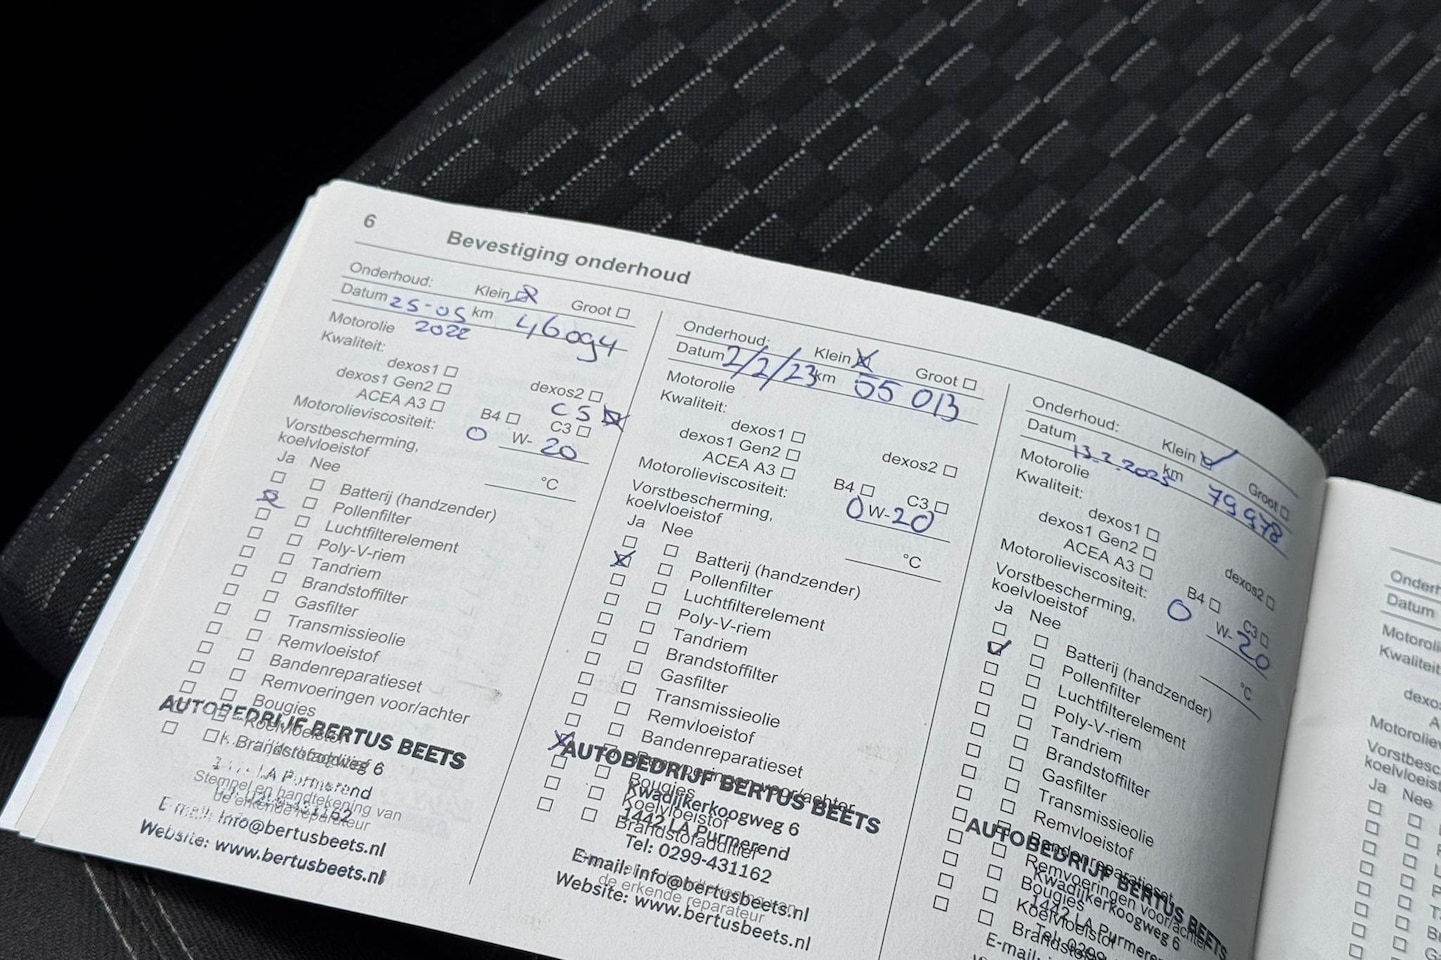 6
Bevestiging onderhoud
Onderhoud: Klein Groot
Datum 25-05 km 46094
Motorolie 2022
Kwaliteit:
dexos1
dexos1 Gen2 dexos2
ACEA A3 C5
Motorolieviscositeit: B4 C3
0 W- 20
Vorstbescherming,
koelvloeistof °C
Ja Nee
Batterij (handzender)
Pollenfilter
Luchtfilterelement
Poly-V-riem
Tandriem
Brandstoffilter
Gasfilter
Transmissieolie
Remvloeistof
Bandenreparatieset
Remvoeringen voor/achter
Bougies
Koelvloeistof
Brandstofadditief
AUTOBEDRIJF BERTUS BEETS
Stempel en handtekening van
de erkende reparateur
E-mail: info@bertusbeets.nl
Website: www.bertusbeets.nl
Onderhoud: Klein Groot
Datum 2/2/23 km
Motorolie
Kwaliteit:
dexos1
dexos1 Gen2 dexos2
ACEA A3
Motorolieviscositeit: B4 C3
0 W- 20
Vorstbescherming,
koelvloeistof °C
Ja Nee
Batterij (handzender)
Pollenfilter
Luchtfilterelement
Poly-V-riem
Tandriem
Brandstoffilter
Gasfilter
Transmissieolie
Remvloeistof
Bandenreparatieset
Remvoeringen voor/achter
Bougies
Koelvloeistof
Brandstofadditief
AUTOBEDRIJF BERTUS BEETS
Kwadijkerkoogweg 6
1442 LA Purmerend
Tel: 0299-431162
de erkende reparateur
E-mail: info@bertusbeets.nl
Website: www.bertusbeets.nl
Onderhoud: Klein Groot
Datum 13.2.2025 km 79978
Motorolie
Kwaliteit:
dexos1
dexos1 Gen2 dexos2
ACEA A3
Motorolieviscositeit: B4 C3
0 W- 20
Vorstbescherming,
koelvloeistof °C
Ja Nee
Batterij (handzender)
Pollenfilter
Luchtfilterelement
Poly-V-riem
Tandriem
Brandstoffilter
Gasfilter
Transmissieolie
Remvloeistof
Bandenreparatieset
Remvoeringen voor/achter
Bougies
Koelvloeistof
AUTOBEDRIJF BERTUS BEETS
Kwadijkerkoogweg 6
1442 LA Purmerend
Tel: 0299
E-mail:
Datum
Ja Nee